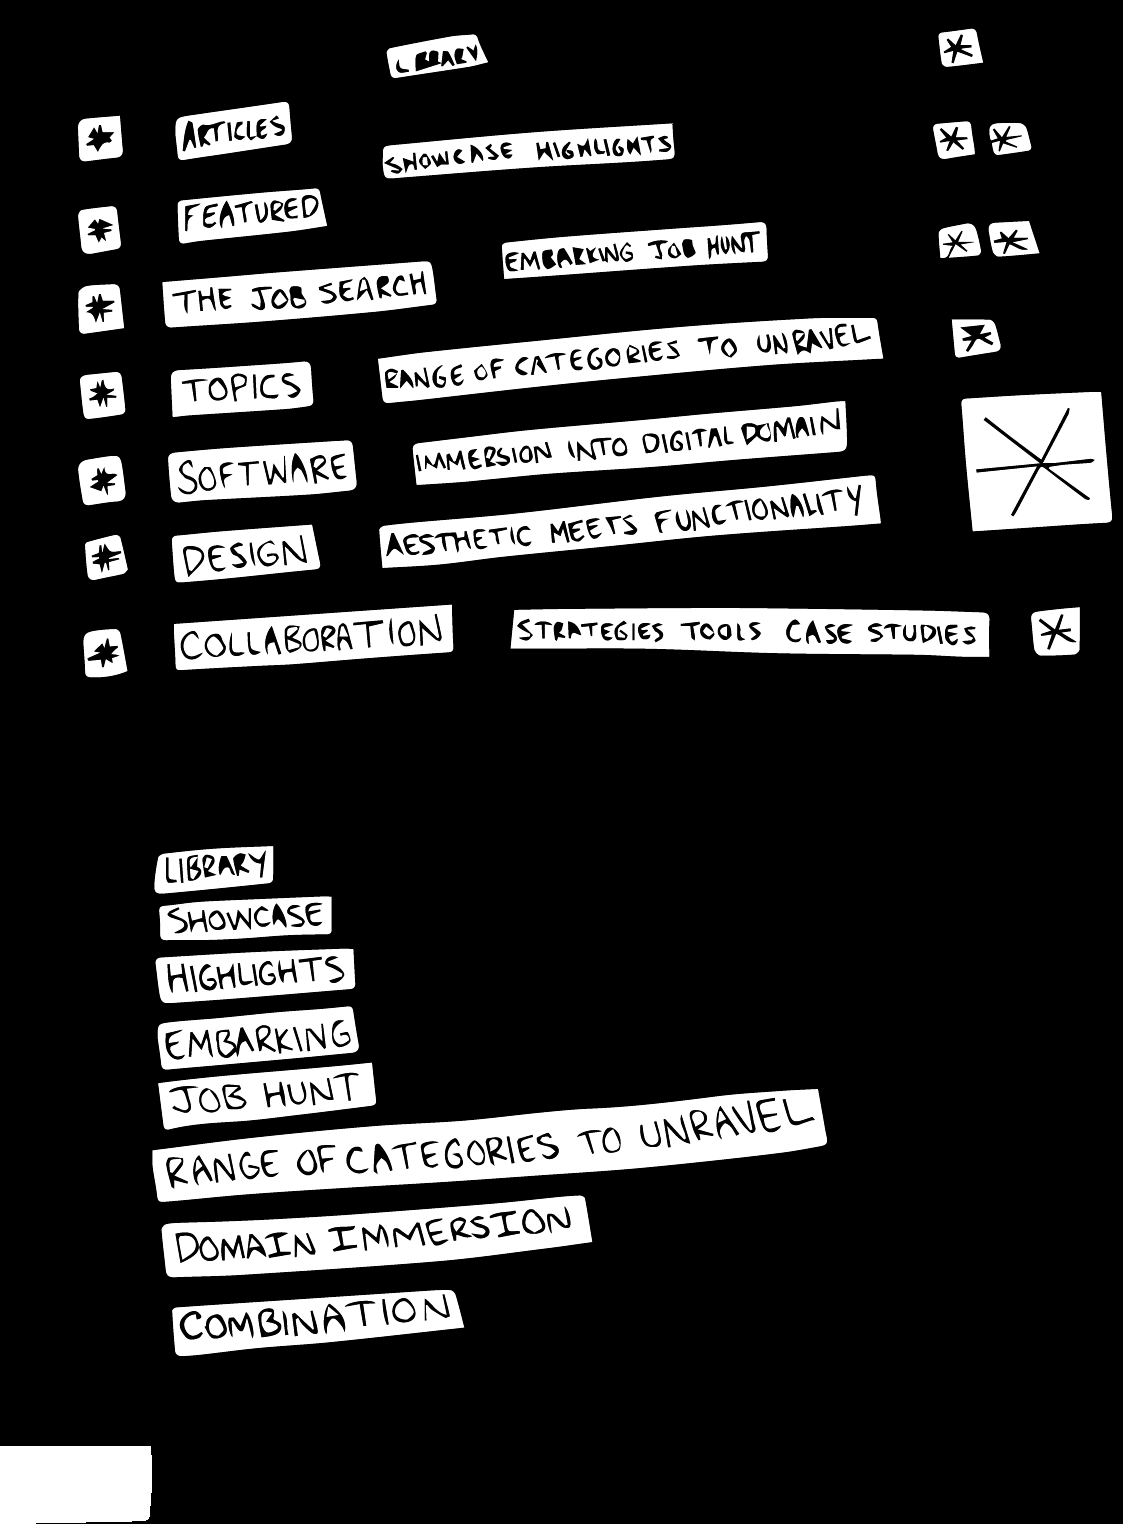 LIBRARY *
* ARTICLES SHOWCASE HIGHLIGHTS * *
* FEATURED
* THE JOB SEARCH EMBARKING JOB HUNT * *
* TOPICS RANGE OF CATEGORIES TO UNRAVEL *
* SOFTWARE IMMERSION INTO DIGITAL DOMAIN *
* DESIGN AESTHETIC MEETS FUNCTIONALITY
* COLLABORATION STRATEGIES TOOLS CASE STUDIES *
LIBRARY
SHOWCASE
HIGHLIGHTS
EMBARKING
JOB HUNT
RANGE OF CATEGORIES TO UNRAVEL
DOMAIN IMMERSION
COMBINATION